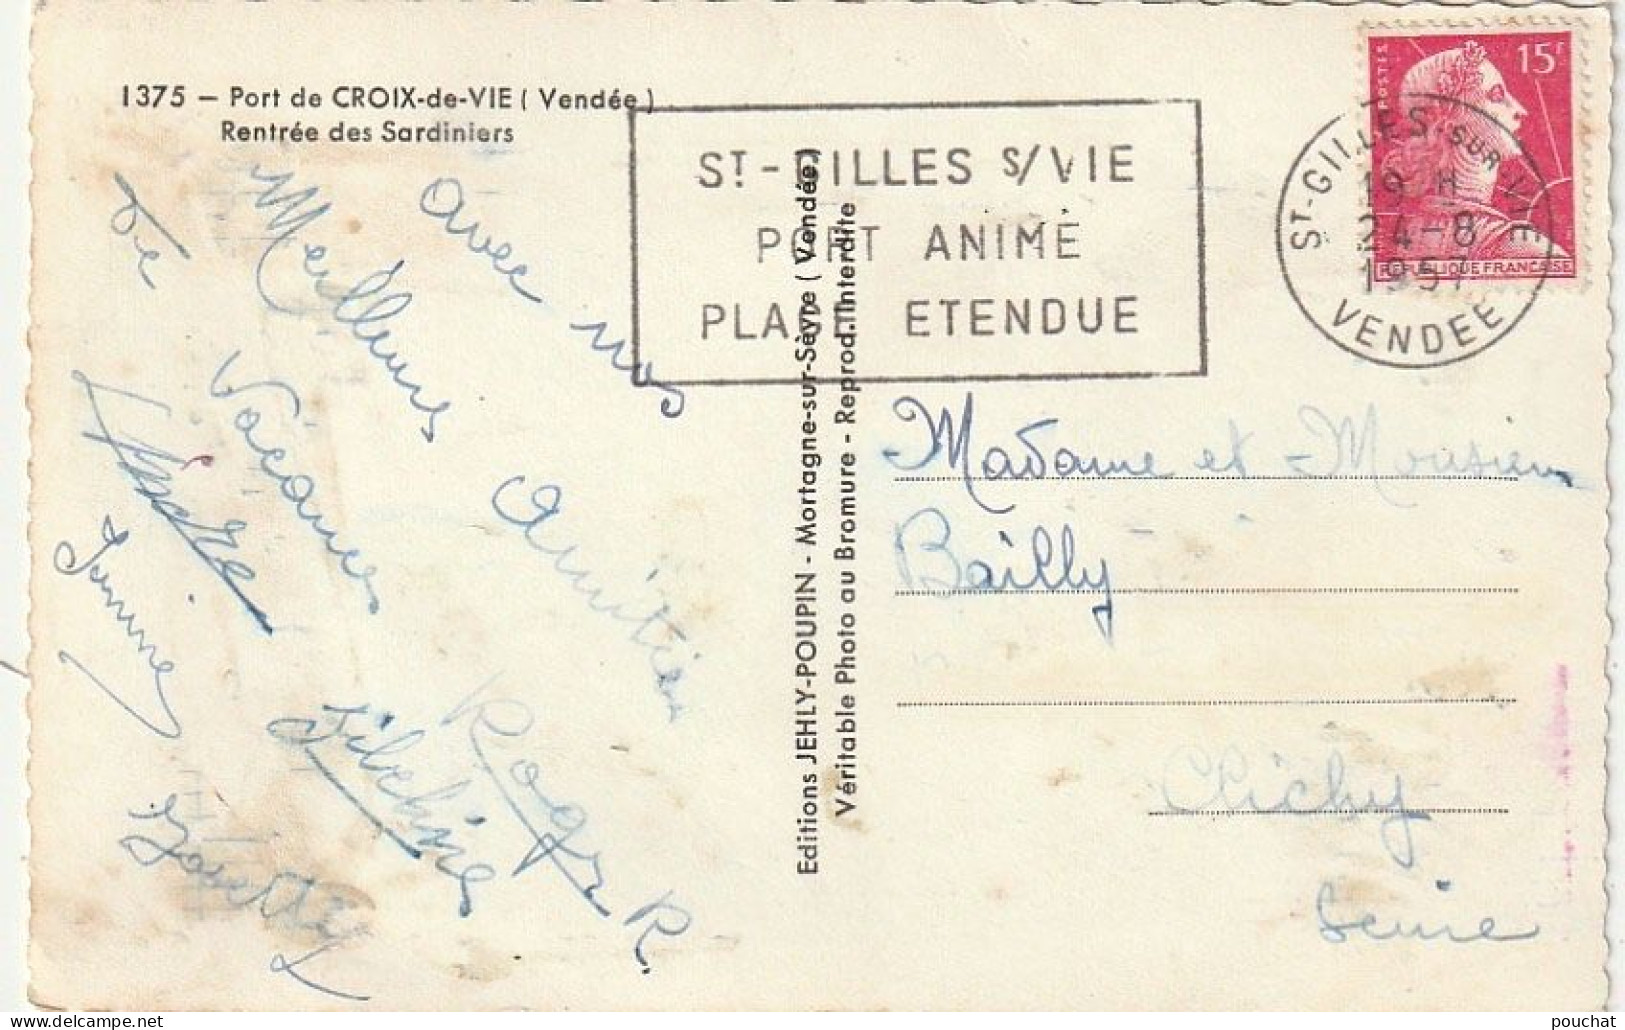 1375 – Port de CROIX-de-VIE ( Vendée )
Rentrée des Sardiniers
ST-GILLES S/VIE
PORT ANIMÉ
PLAGE ETENDUE
POSTES
15F
REPUBLIQUE FRANÇAISE
ST-GILLES-SUR-VIE
19 H
24-8
1957
VENDEE
Editions JEHLY-POUPIN - Mortagne-sur-Sèvre ( Vendée )
Véritable Photo au Bromure - Reprod. Interdite
avec nos
Meilleures Amitiés
de Vacances
Janine
Roger R.
Madame et Monsieur
Bailly
Clichy
Seine
pouchat